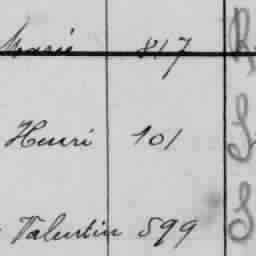 Marie 817
Henri 101
Valentin 599